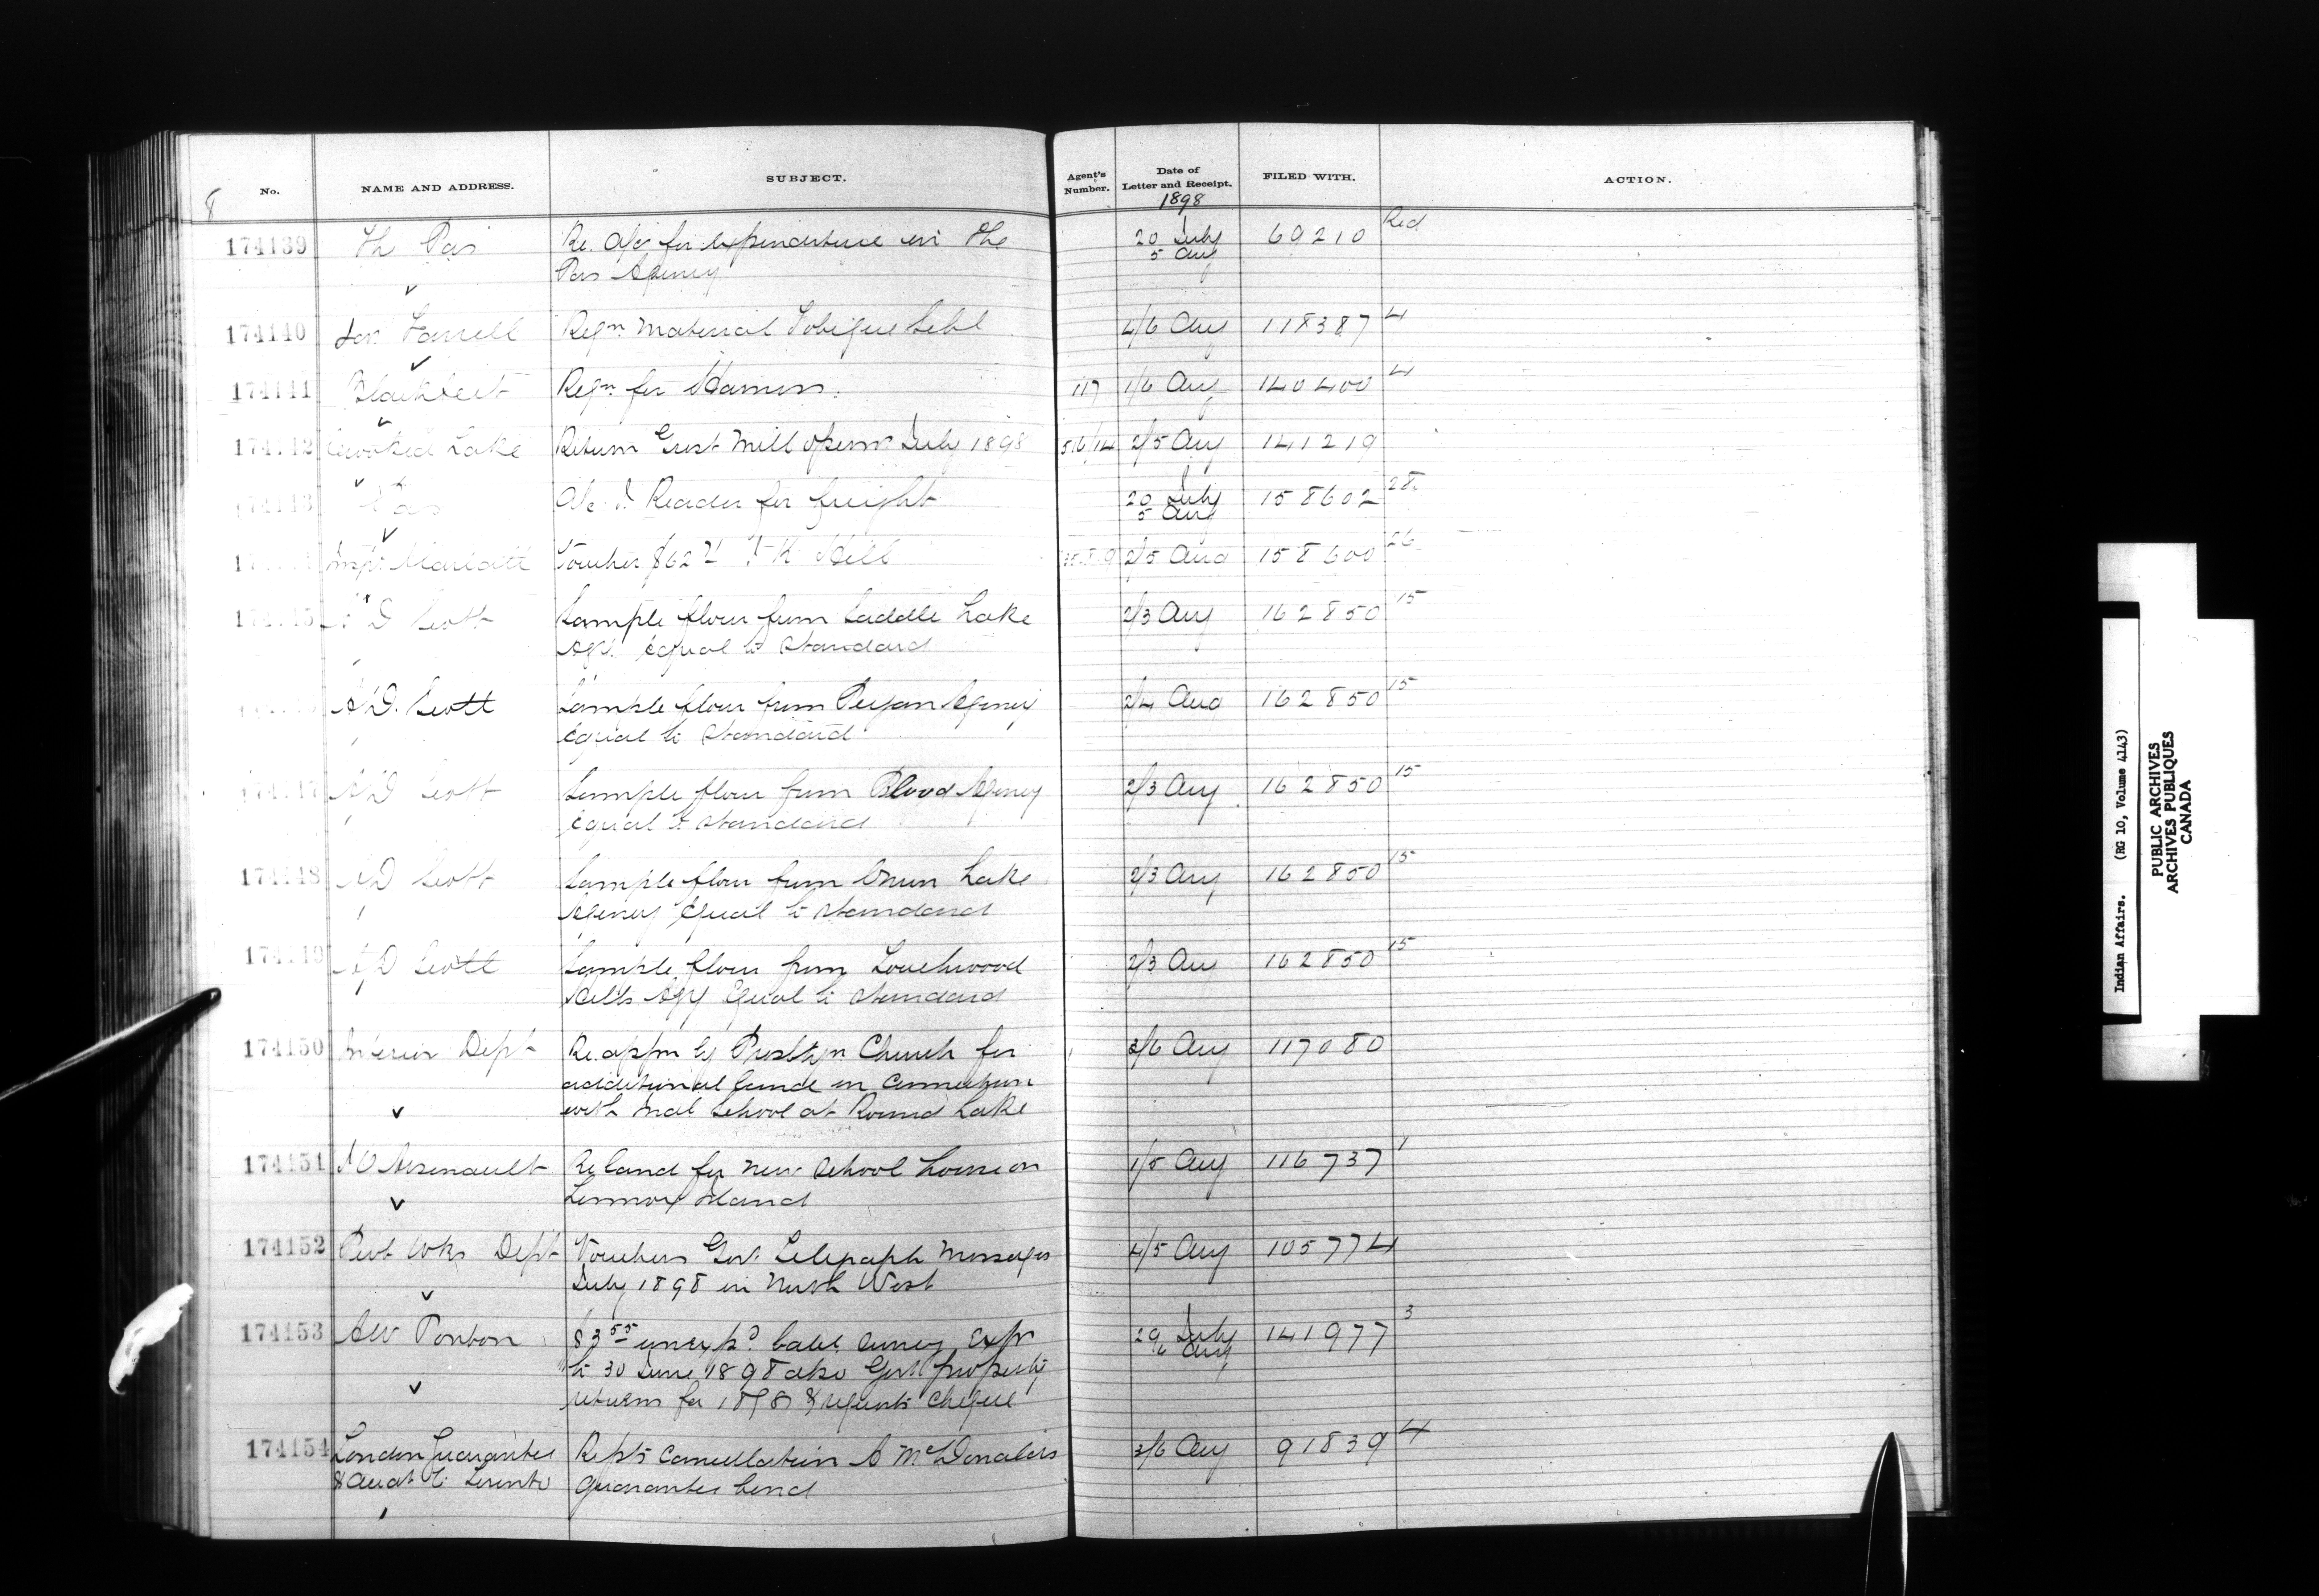 8
No.
NAME AND ADDRESS.
SUBJECT.
Agent's Number.
Date of Letter and Receipt.
1898
FILED WITH.
ACTION.
174139 Th Pas Re. a/c for expenditure in the 20 July 69210 Red
Pas Agency 5 Aug
174140 Jas. Farrell Reqn. Material Tobique Schl 4/6 Aug 118387 4
174141 Reqn. for Harness. 117 1/6 Aug 140400 4
Crooked Lake Return Grist Mill opern. July 1898 2/5 Aug 141219
Pas a/c J. Reader for freight 20 July 158602 28
5 Aug
Voucher $62 Hill 2/5 Aug 158600 26
A D Scott Sample flour from Saddle Lake 2/3 Aug 162850 15
Agy. Equal to Standard
A D. Scott Sample flour from Peigan Agency 2/4 Aug 162850 15
Equal to Standard
A D Scott Sample flour from Blood Agency 2/3 Aug 162850 15
Equal to Standard
174148 A D Scott Sample flour from Onion Lake 2/3 Aug 162850 15
Agency Equal to Standard
A D Scott Sample flour from Touchwood 2/3 Aug 162850 15
Hills Agy Equal to Standard
174150 Interior Dept Re. appn by Presbtyn Church for 3/6 Aug 117080
additional land in connection
with Indl School at Round Lake
174151 J O Arsenault Re land for new school house on 1/5 Aug 116737 1
Lennox Island
174152 Pub Wks Dept Vouchers Govt. Telegraph Messages 4/5 Aug 105774
July 1898 in North West
174153 A W Ponton 83 55 unexpd. balce survey Expn 29 July 141977 3
to 30 June 1898 also Govt property 6 Aug
returns for 1898 & requests cheque
174154 London Guarantee Repts cancellation A McDonald's 3/6 Aug 91839 4
& Accdt Co Toronto guarantee bond
Indian Affairs. (RG 10, Volume 4143)
PUBLIC ARCHIVES
ARCHIVES PUBLIQUES
CANADA